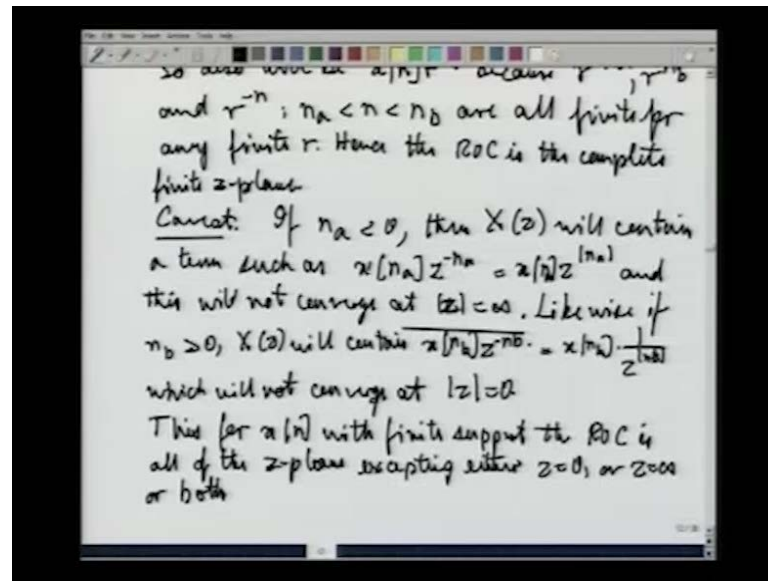 and r^{-n} ; n_a < n < n_b are all finite for
any finite r. Hence the ROC is the complete
finite z-plane
Caveat: If n_a < 0, then X(z) will contain
a term such as x[n_a] z^{-n_a} = x[n] z^{|n_a|} and
this will not converge at |z| = ∞. Likewise if
n_b > 0, X(z) will contain x[n_b] z^{-n_b}. = x[n_b] . 1/z^{|n_b|}
which will not converge at |z| = 0
Thus for x[n] with finite support the ROC is
all of the z-plane excepting either z=0, or z=∞
or both